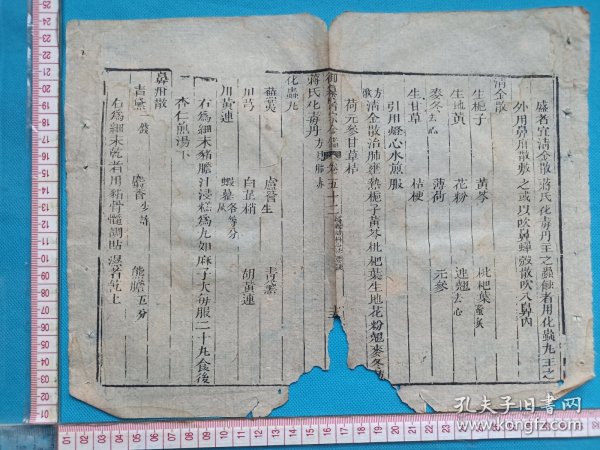 盛者宜清金散蔣氏化毒丹主之蟲蝕者用化蟲丸主之
外用鼻疳散敷之或以吹鼻蟬殼散吹入鼻內
清金散
生梔子 黃芩 枇杷葉蜜炙
生地黃 花粉 連翹去心
麥冬去心 薄荷 元參
生甘草 桔梗
引用燈心水煎服
方歌 清金散治肺壅熱梔子黃芩枇杷葉生地花粉翹麥冬薄
荷元參甘草桔
御纂醫宗金鑑 卷五十二
蔣氏化毒丹 方見
化蟲丸
蕪荑 蘆薈生 青黛
川芎 白芷梢 胡黃連
川黃連 蝦蟇各等分
右為細末豬膽汁浸糕為丸如麻子大每服二十丸食後
杏仁煎湯下
鼻疳散
青黛一錢 麝香少許 熊膽五分
右為細末乾者用豬骨髓調貼濕者乾上
孔夫子旧书网
www.kongfz.com